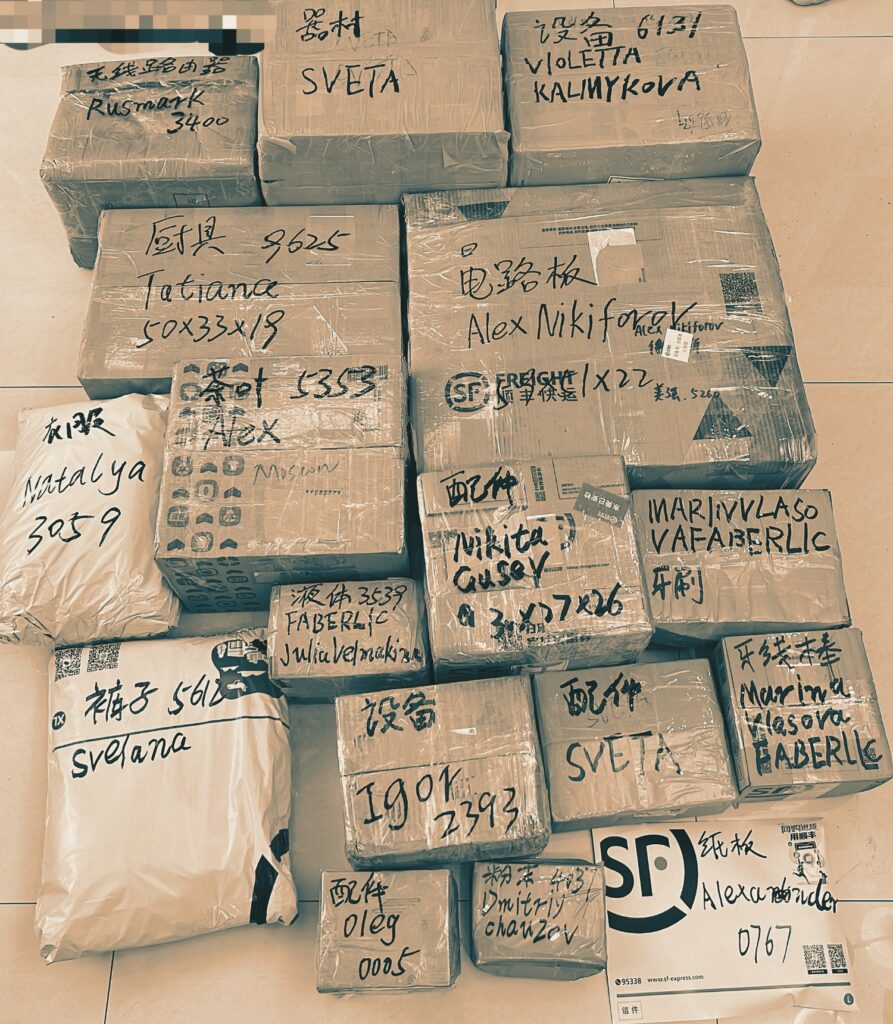 器材
SVETA
设备 6131
VIOLETTA
KALMYKOVA
无线路由器
Rusmark
3400
厨具 9625
Tatiana
50X33X19
电路板
Alex Nikiforov
Alex Nikiforov
SF FREIGHT
顺丰快运
1X22
美强.5260
茶叶 5353
Alex
Moscow
衣服
Natalya
3059
配件
Nikita
Gusev
X27X26
MARINVVLASO
VAFABERLIC
牙刷
液体 3539
FABERLIC
裤子 5612
Svelana
设备
Igor
2393
配件
SVETA
牙线棒
Marina
Vlasova
FABERLIC
配件
Oleg
0005
粉末
Dmitriy
chauzov
SF
网购退货
用顺丰
纸板
0767
95338 www.sf-express.com
信件
L